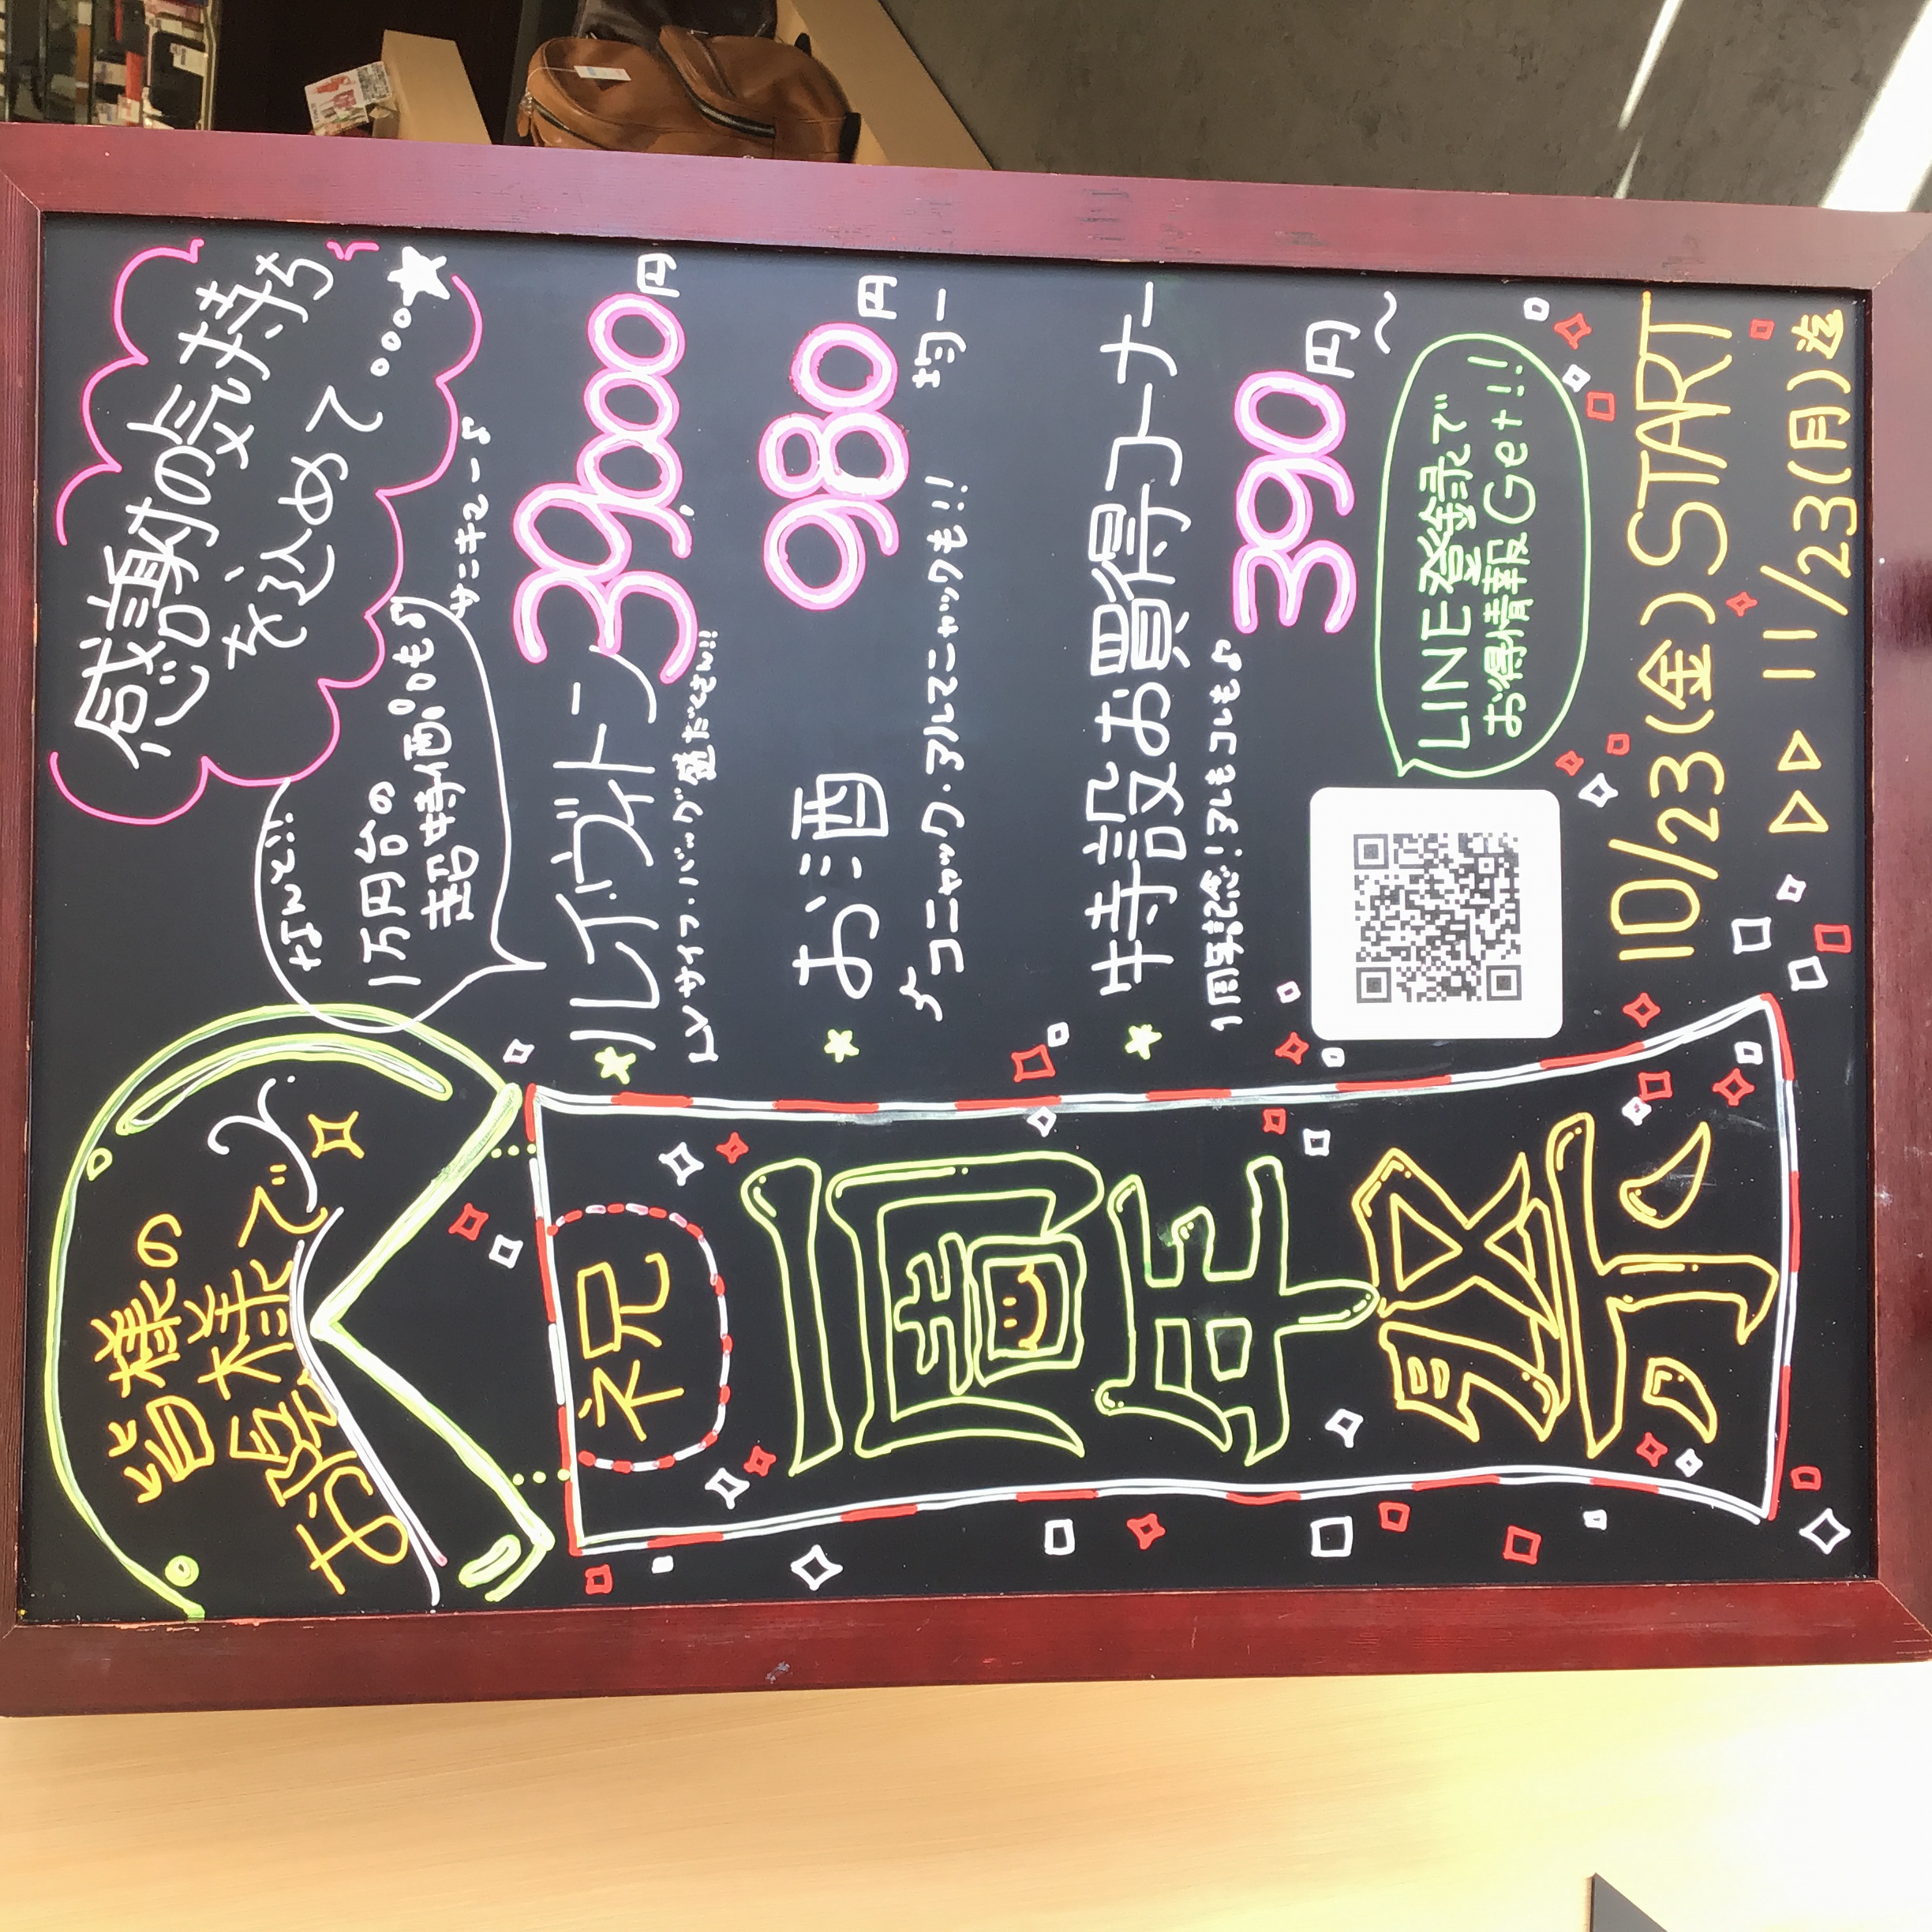 皆様の
お陰様で
祝
一周年祭
感謝の気持ち
を込めて...
なんと!!
1万円台の
超特価品も♪
サンキュー♪
ルイ・ヴィトン 39,000円
LVサイフ・バッグ盛だくさん!!
お酒 980円
均一
コニャック・アルマニャックも!!
特設お買得コーナー
1周年記念!アレもコレも♪
390円
～
LINE登録で
お得情報Get!!
10/23(金) START
▷▷ 11/23(月)迄